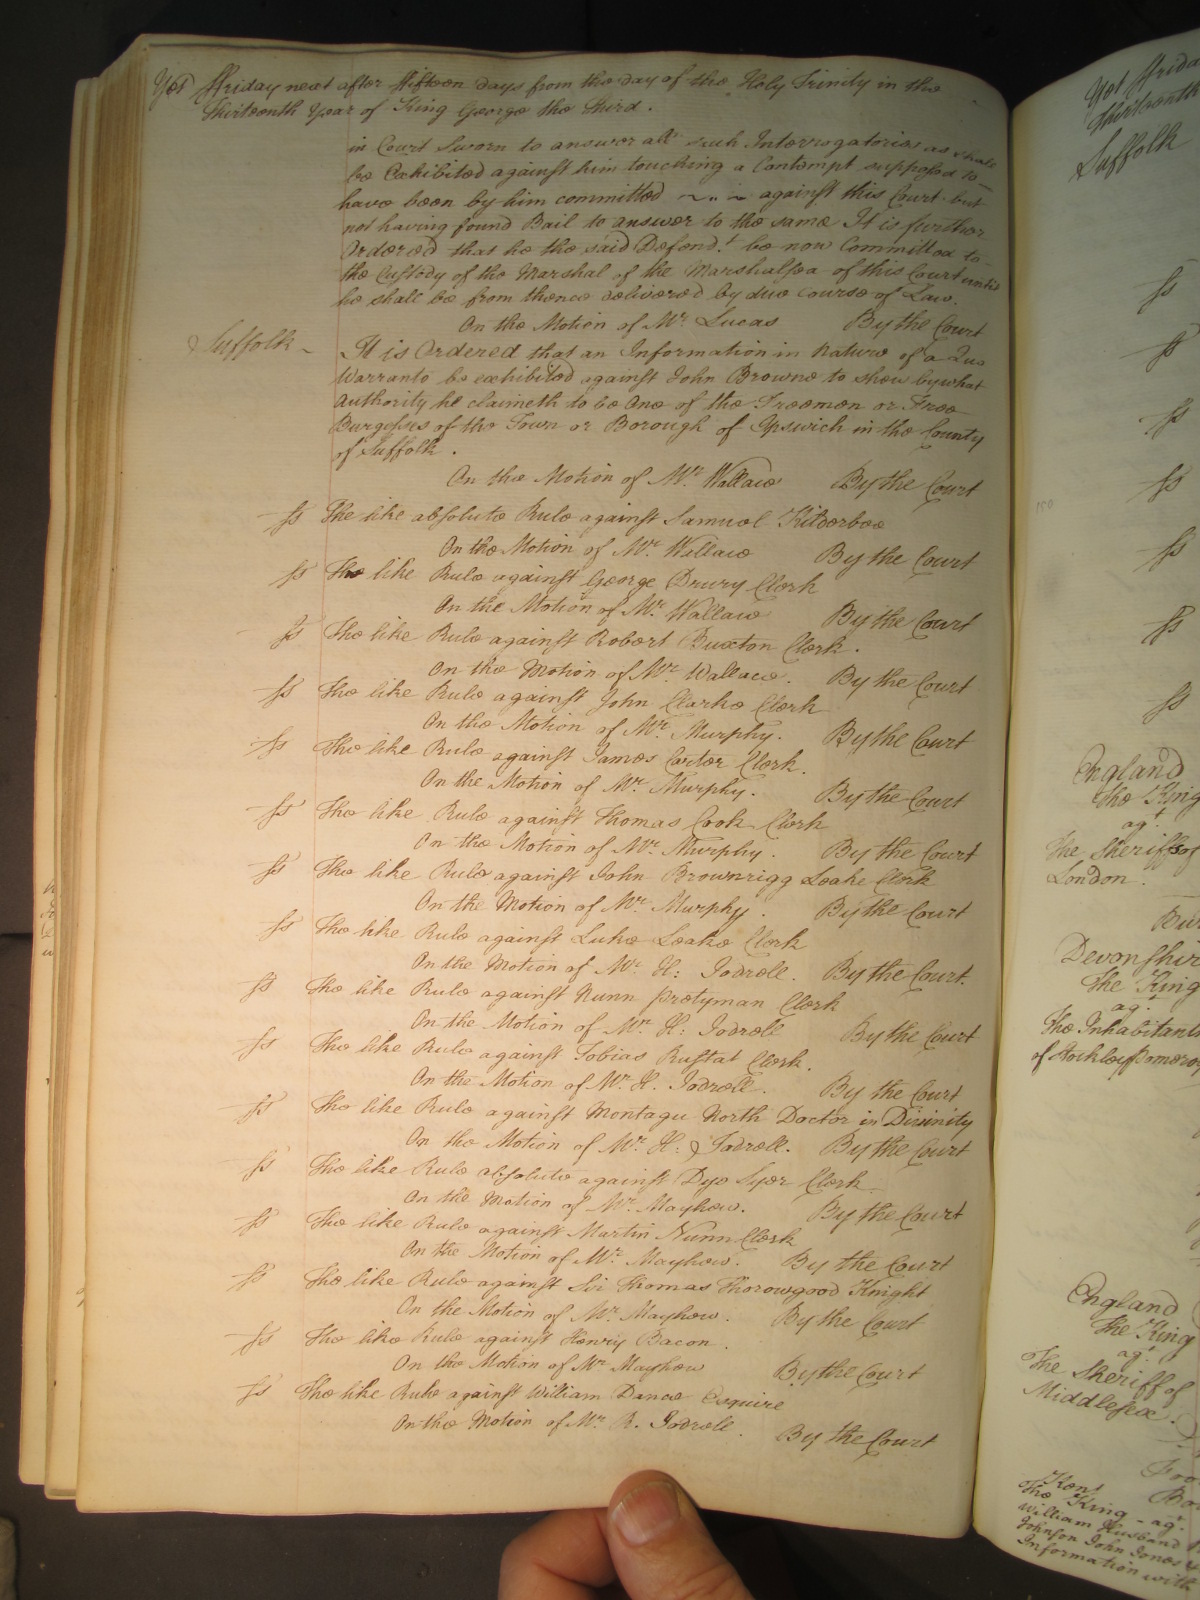 Yet Friday next after fifteen days from the day of the Holy Trinity in the
Thirteenth Year of King George the third.
in Court Sworn to answer all such Interrogatories as shall
be Exhibited against him touching a Contempt supposed to
have been by him committed against this Court but
not having found Bail to answer to the same It is further
Ordered that he the said Defend.t be now Committed to
the Custody of the Marshal of the Marshalsea of this Court until
he shall be from thence delivered by due course of Law.
On the Motion of Mr. Lucas By the Court
Suffolk It is Ordered that an Information in Nature of a Quo
Warranto be exhibited against John Browne to shew by what
Authority he claimeth to be One of the Freemen or Free
Burgesses of the Town or Borough of Ipswich in the County
of Suffolk.
On the Motion of Mr. Wallace By the Court
ss The like absolute Rule against Samuel Kilderbee
On the Motion of Mr. Wallace By the Court
ss The like Rule against George Drury Clerk
On the Motion of Mr. Wallace By the Court
ss The like Rule against Robert Buxton Clerk.
On the Motion of Mr. Wallace. By the Court
ss The like Rule against John Clarke Clerk
On the Motion of Mr. Murphy. By the Court
ss The like Rule against James Carter Clerk.
On the Motion of Mr. Murphy. By the Court
ss The like Rule against Thomas Cook Clerk
On the Motion of Mr. Murphy. By the Court
ss The like Rule against John Brownrigg Leake Clerk
On the Motion of Mr. Murphy. By the Court
ss The like Rule against Luke Leake Clerk
On the Motion of Mr. H: Jodrell. By the Court.
ss The like Rule against Nunn Pretyman Clerk
On the Motion of Mr. H: Jodrell By the Court
ss The like Rule against Tobias Rustat Clerk.
On the Motion of Mr. H. Jodrell. By the Court
ss The like Rule against Montagu North Doctor in Divinity
On the Motion of Mr. H: Jodrell. By the Court
ss The like Rule absolute against Dye Syer Clerk
On the Motion of Mr. Mayhew. By the Court
ss The like Rule against Martin Nunn Clerk
On the Motion of Mr. Mayhew. By the Court
ss The like Rule against Sir Thomas Thorowgood Knight
On the Motion of Mr. Mayhew. By the Court
ss The like Rule against Henry Bacon.
On the Motion of Mr. Mayhew By the Court
ss The like Rule against William Dance Esquire
On the Motion of Mr. R. Jodrell. By the Court
Yet Frida
thirteenth
Suffolk
ss
ss
ss
ss
ss
ss
ss
England
The King
ag.t
The Sheriff of
London.
Devonshir
The King
ag.t
The Inhabitant
of Stockley Pomeroy
England
The King
ag.t
The Sheriff of
Middlesex.
Kent
The King - ag.t
William Husband
Johnson John Jones
Information with